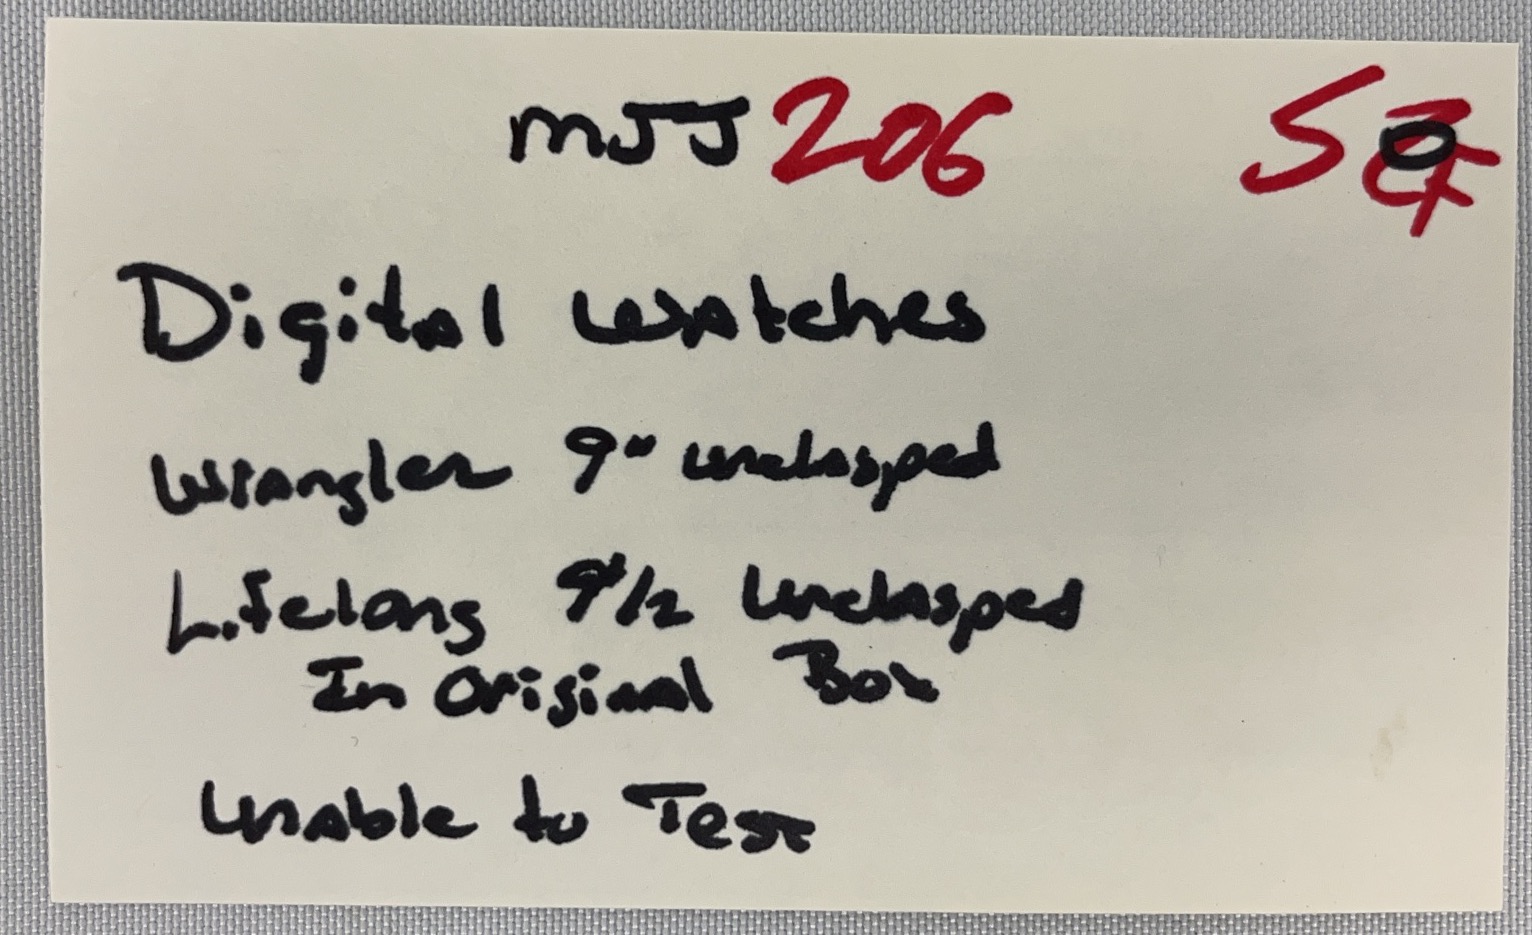 MJJ 206 S
Digital Watches
Wrangler 9" unclasped
Lifelong 9 1/2 Unclasped
In Original Box
Unable to Test